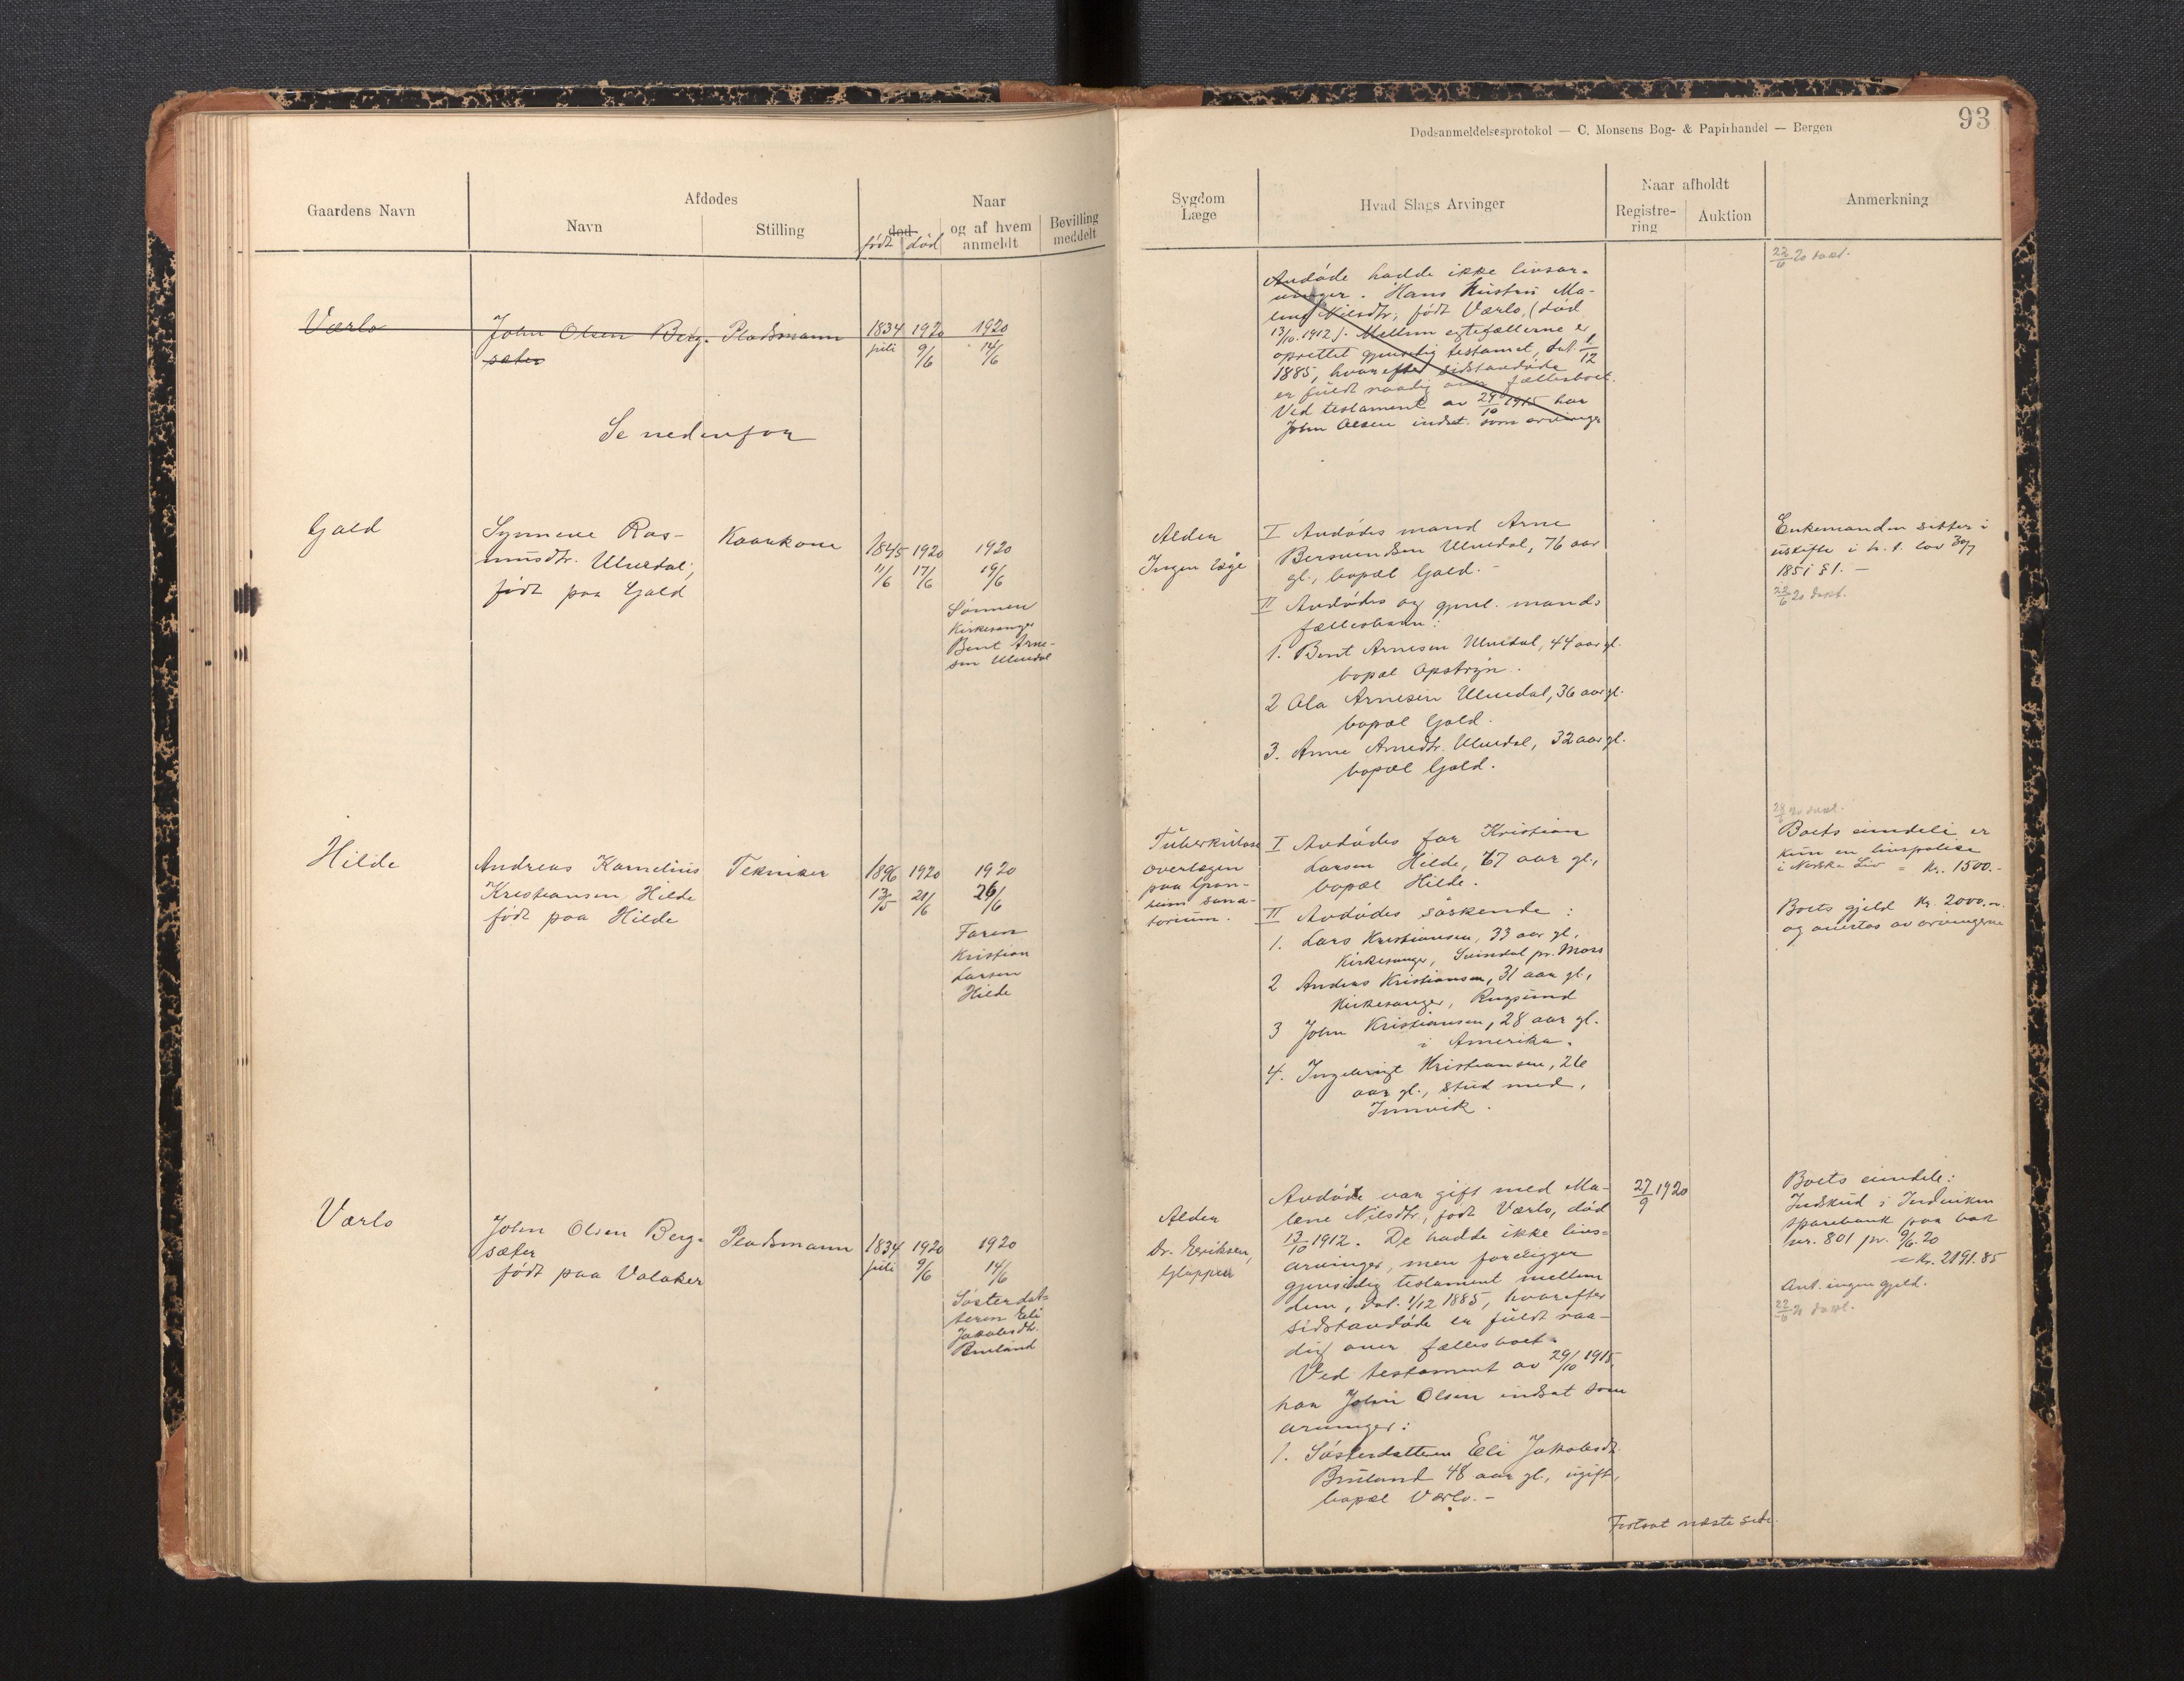 Gaardens Navn
Afdødes
Navn
Stilling
død
født død
Naar
og af hvem
anmeldt
Bevilling
meddelt
Værlo
John Olsen Berg-
sæter
Pladsmann
1834 1920 1920
juli 9/6 14/6
Se nedenfor
Gald
Synneve Ras-
musdtr. Ulvedal,
født paa Gald
Kaarkone
1845 1920 1920
11/6 17/6 19/6
Sønnen
Kirkesanger
Bent Arne-
sen Ulvedal
Hilde
Andreas Kornelius
Kristiansen Hilde
født paa Hilde
Tekniker
1896 1920 1920
13/5 21/6 26/6
Faren
Kristian
Larsen
Hilde
Værlo
John Olsen Berg-
sæter
født paa Valaker
Pladsmann
1834 1920 1920
juli 9/6 14/6
Søsterdat-
teren Eli
Jakobsdtr.
Bruland
Dødsanmeldelsesprotokol — C. Monsens Bog- & Papirhandel — Bergen
93
Sygdom
Læge
Hvad Slags Arvinger
Naar afholdt
Registre-
ring
Auktion
Anmerkning
Avdøde hadde ikke livsar-
vinger. Hans hustru Ma-
lene Nilsdtr, født Værlo, (død
13/10 1912). Mellem egtefællerne er
oprettet gjensidig testament, dat. 1/12
1885, hvorefter sidstavdøde
er fuldt raadig over fællesboet.
Ved testament av 29/10 1915 har
John Olsen indsat som arvinger
22/6 20 dakt.
Alder
Ingen læge
I Avdødes mand Arne
Bersvendsen Ulvedal, 76 aar
gl., bopæl Gald. -
II Avdødes og gjenl. mands
fællesbarn:
1. Bent Arnesen Ulvedal, 44 aar gl.
bopæl Opstryn.
2 Ola Arnesen Ulvedal, 36 aar gl.
bopæl Gald.
3. Anne Arnedtr. Ulvedal, 32 aar gl.
bopæl Gald.
Enkemanden sitter i
uskifte i h. t. lov 30/7
1851 § 1. —
22/6 20 dakt.
Tuberkulose
overlægen
paa
sana-
torium.
I Avdødes far Kristian
Larsen Hilde, 67 aar gl.,
bopæl Hilde.
II Avdødes søskende:
1. Lars Kristiansen, 33 aar gl.
Kirkesanger, Svindal pr. Moss
2 Andreas Kristiansen, 31 aar gl.,
Kirkesanger, Rugsund
3 John Kristiansen, 28 aar gl.
i Amerika.
4. Ingebrigt Kristiansen, 26
aar gl., stud med,
Innvik.
28/6 20 dakt.
Boets eiendele er
kun en livspolice
i Norske Liv = kr. 1500.-
Boets gjeld kr. 2000.-
og overtas av arvingerne
Alder
Dr. Eriksen,
Gloppen
Avdøde var gift med Ma-
lene Nilsdtr, født Værlo, død
13/10 1912. De hadde ikke livs-
arvinger, men foreligger
gjensidig testament mellem
dem, dat. 1/12 1885, hvorefter
sidstavdøde er fuldt raa-
dig over fællesboet.
Ved testament av 29/10 1915
har John Olsen indsat som
arvinger:
1. Søsterdatteren Eli Jakobsdtr.
Bruland 48 aar gl., ugift,
bopæl Værlo. -
27/9 1920
Boets eiendele:
Indskud i Indviken
sparebank paa bok
nr. 801 pr. 9/6 20
= kr. 2191.85
Ant. ingen gjeld.
22/6 20 dakt.
Fortsat næste side.